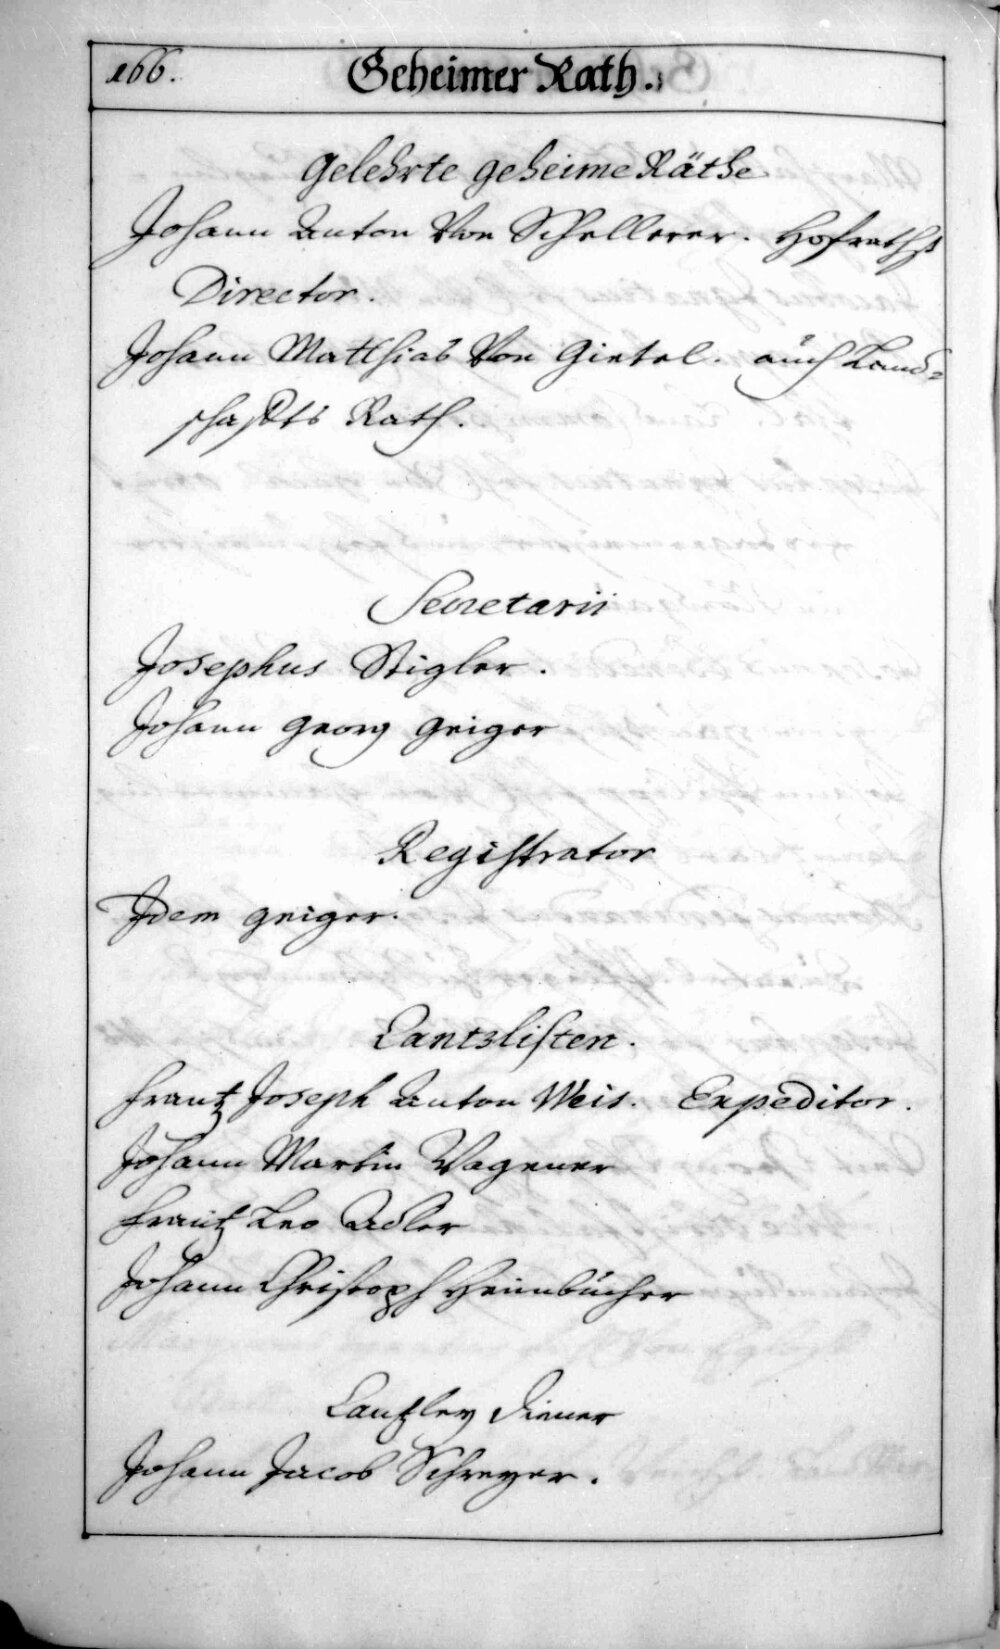 166.
Geheimer Rath.
Gelehrte geheime Räthe
Johann Anton Von Schellerer. Hofraths
Director.
Johann Matthias Von Gietel. auch Land=
schaffts Rath.
Secretarii
Josephus Stigler.
Johann Georg Geiger
Registrator
Idem Geiger.
Cantzlisten.
Frantz Joseph Anton Weis. Expeditor.
Johann Martin Wagener
Frantz Leo Adler
Johann Christoph Heimbücher
Cantzley Diener
Johann Jacob Schreyer.